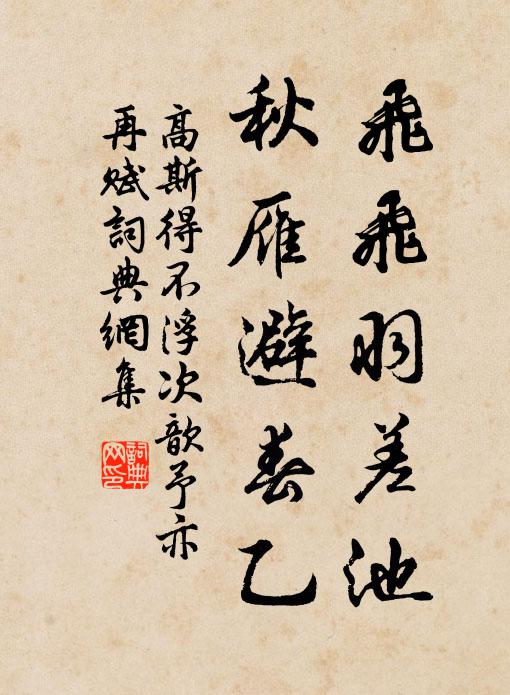 飛飛羽差池
秋雁避春乙
高斯得不浮次歆予亦
再赋詞典網集
詞典网印